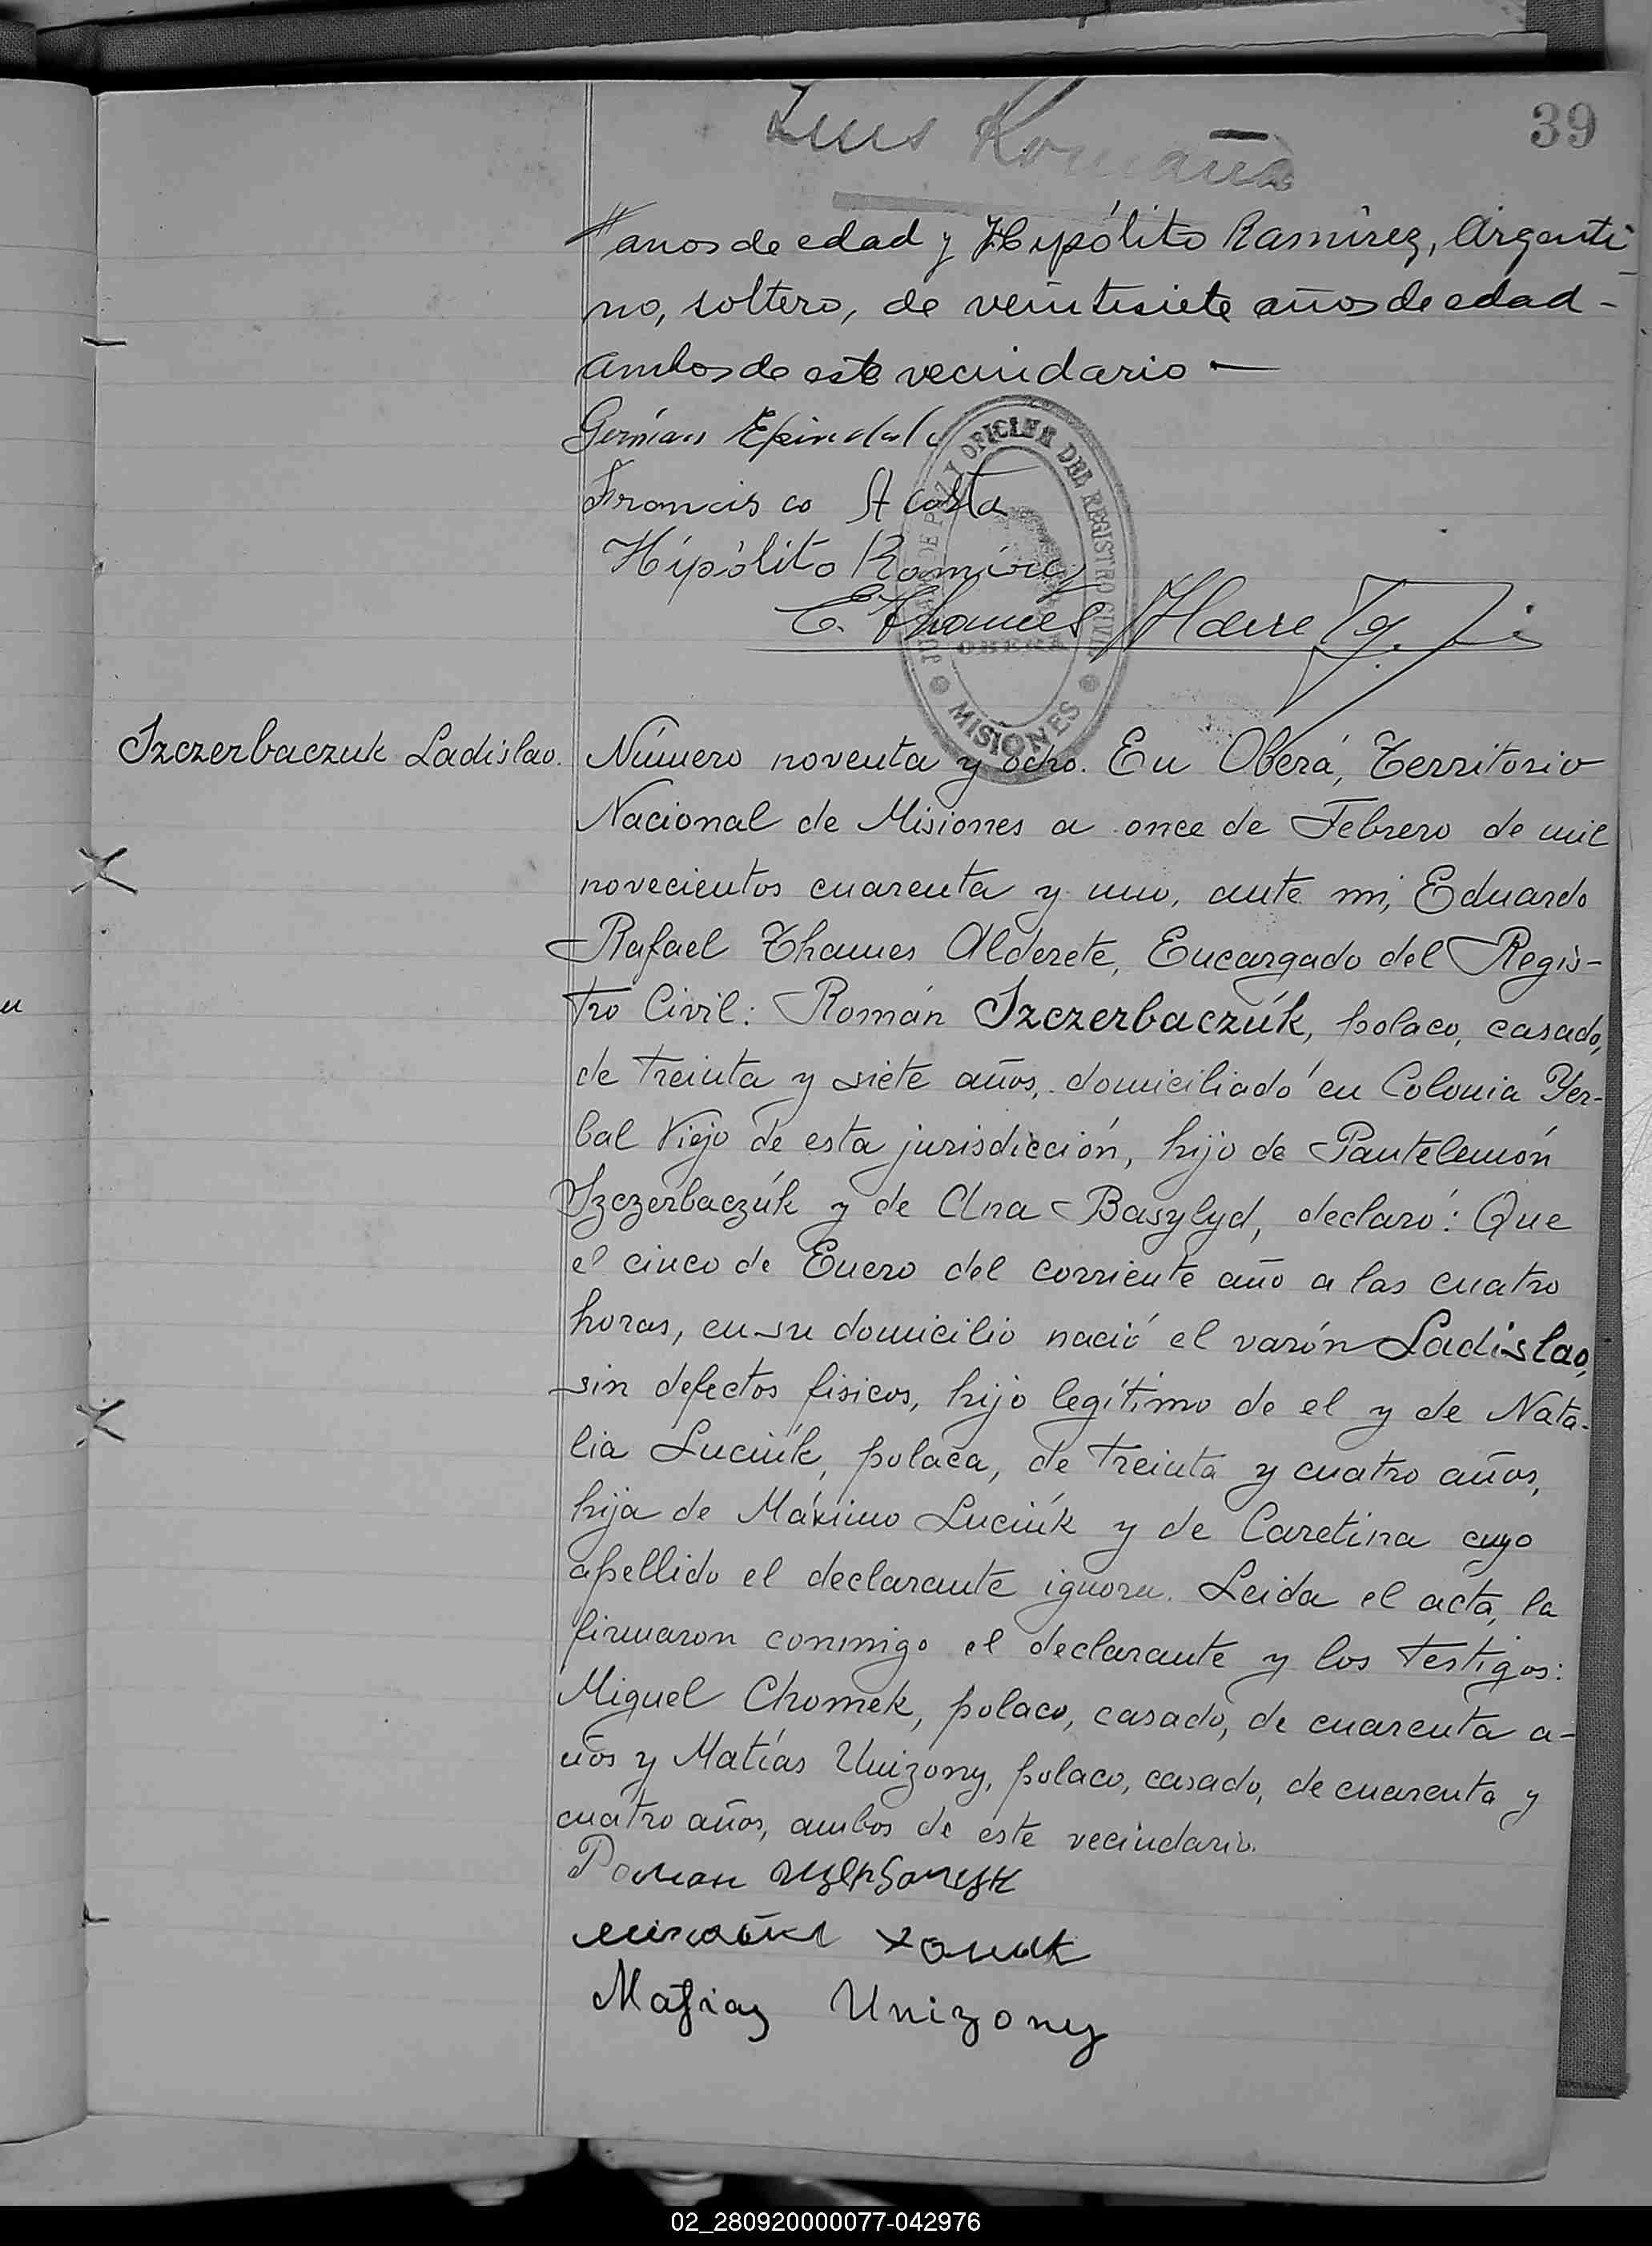 39
Luis Romaña
años de edad y Hipólito Ramírez, Argenti-
no, soltero, de veintisiete años de edad -
ambos de este vecindario —
Francisco Acosta
Hipólito Ramírez
E. Thames Alderete
JUZGADO DE PAZ Y OFICINA DEL REGISTRO CIVIL
OBERÁ
MISIONES
Szczerbaczuk Ladislao.
Número noventa y ocho. En Oberá, Territorio
Nacional de Misiones a once de Febrero de mil
novecientos cuarenta y uno, ante mi, Eduardo
Rafael Thames Alderete, Encargado del Regis-
tro Civil: Román Szczerbaczúk, polaco, casado,
de treinta y siete años, domiciliado en Colonia Yer-
bal Viejo de esta jurisdicción, hijo de Pantelemón
Szczerbaczúk y de Ana Basylyd, declaró: Que
el cinco de Enero del corriente año a las cuatro
horas, en su domicilio nació el varón Ladislao,
sin defectos fisicos, hijo legítimo de el y de Nata-
lia Luciúk, polaca, de treinta y cuatro años,
hija de Máximo Luciúk y de Caretina cuyo
apellido el declarante ignora. Leida el acta, la
firmaron conmigo el declarante y los testigos:
Miguel Chomek, polaco, casado, de cuarenta a-
ños y Matías Unizony, polaco, casado, de cuarenta y
cuatro años, ambos de este vecindario.
Роман
Хомик
Matias Unizony
02_280920000077-042976